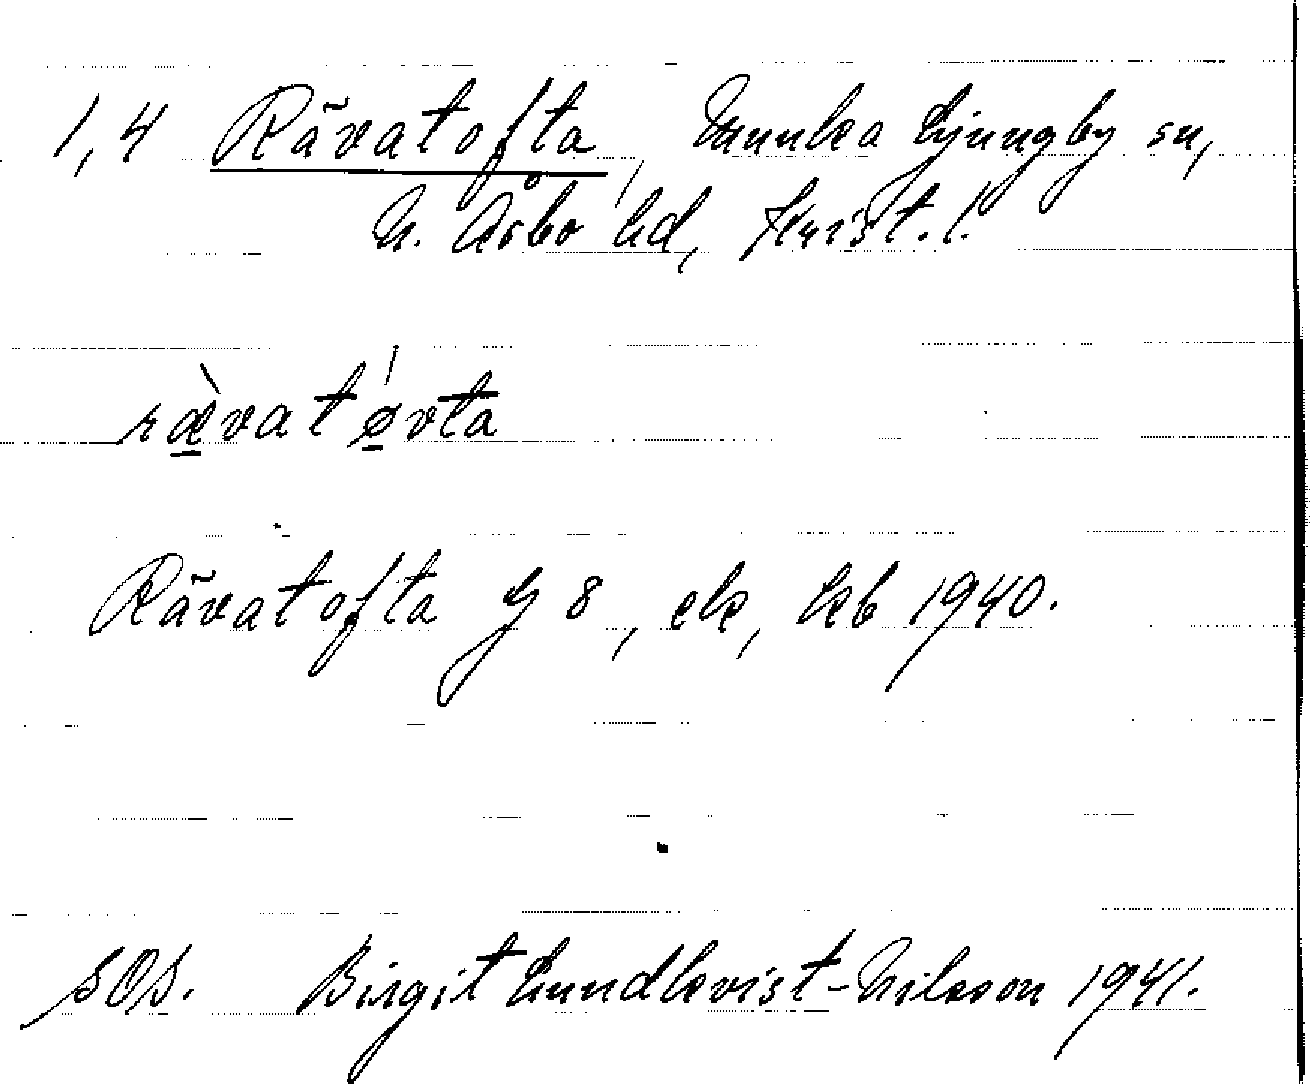 1,4 Rävatofta, Munka Ljungby sn,
N. Åsbo hd, Krist. l.
rævatøvta
Rävatofta G 8, ek, kb 1940.
SOS. Birgit Lundkvist-Nilsson 1941.